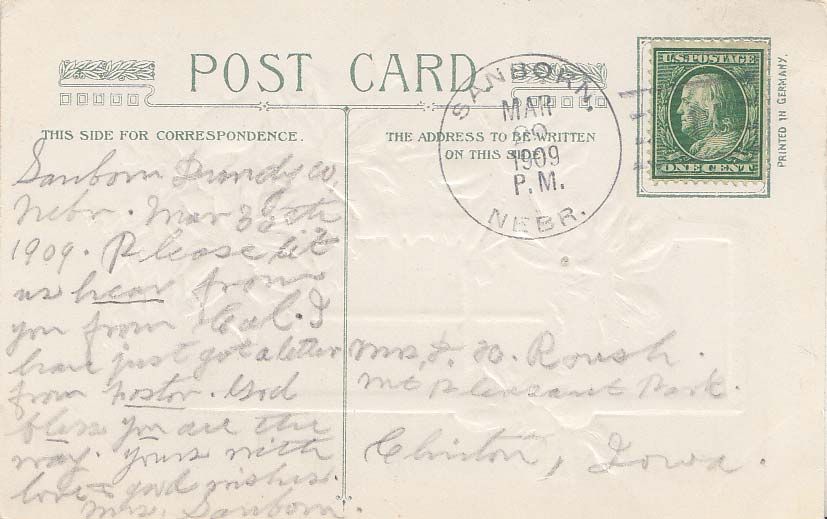 POST CARD
THIS SIDE FOR CORRESPONDENCE.
THE ADDRESS TO BE WRITTEN
ON THIS SIDE
SANBORN.
MAR
1909
P.M.
NEBR.
U.S. POSTAGE
ONE CENT
PRINTED IN GERMANY.
Sanborn Dundy co,
Nebr. Mar th
1909. Please let
us hear from
you from Cal. I
have just got a letter
from Foster. God
bless you all the
way. Yours with
love & good wishes.
Mrs. Sanborn.
Mrs. F. H. Roush.
Mt Pleasant Park.
Clinton, Iowa.